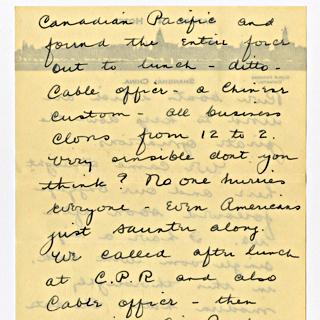 Canadian Pacific and
found the entire force
out to lunch - ditto -
Cable office - a Chinese
custom - all business
closes from 12 to 2.
Very sensible dont you
think? No one hurries
everyone - even Americans
just saunter along.
We called after lunch
at C.P.R. and also
Cable office - then